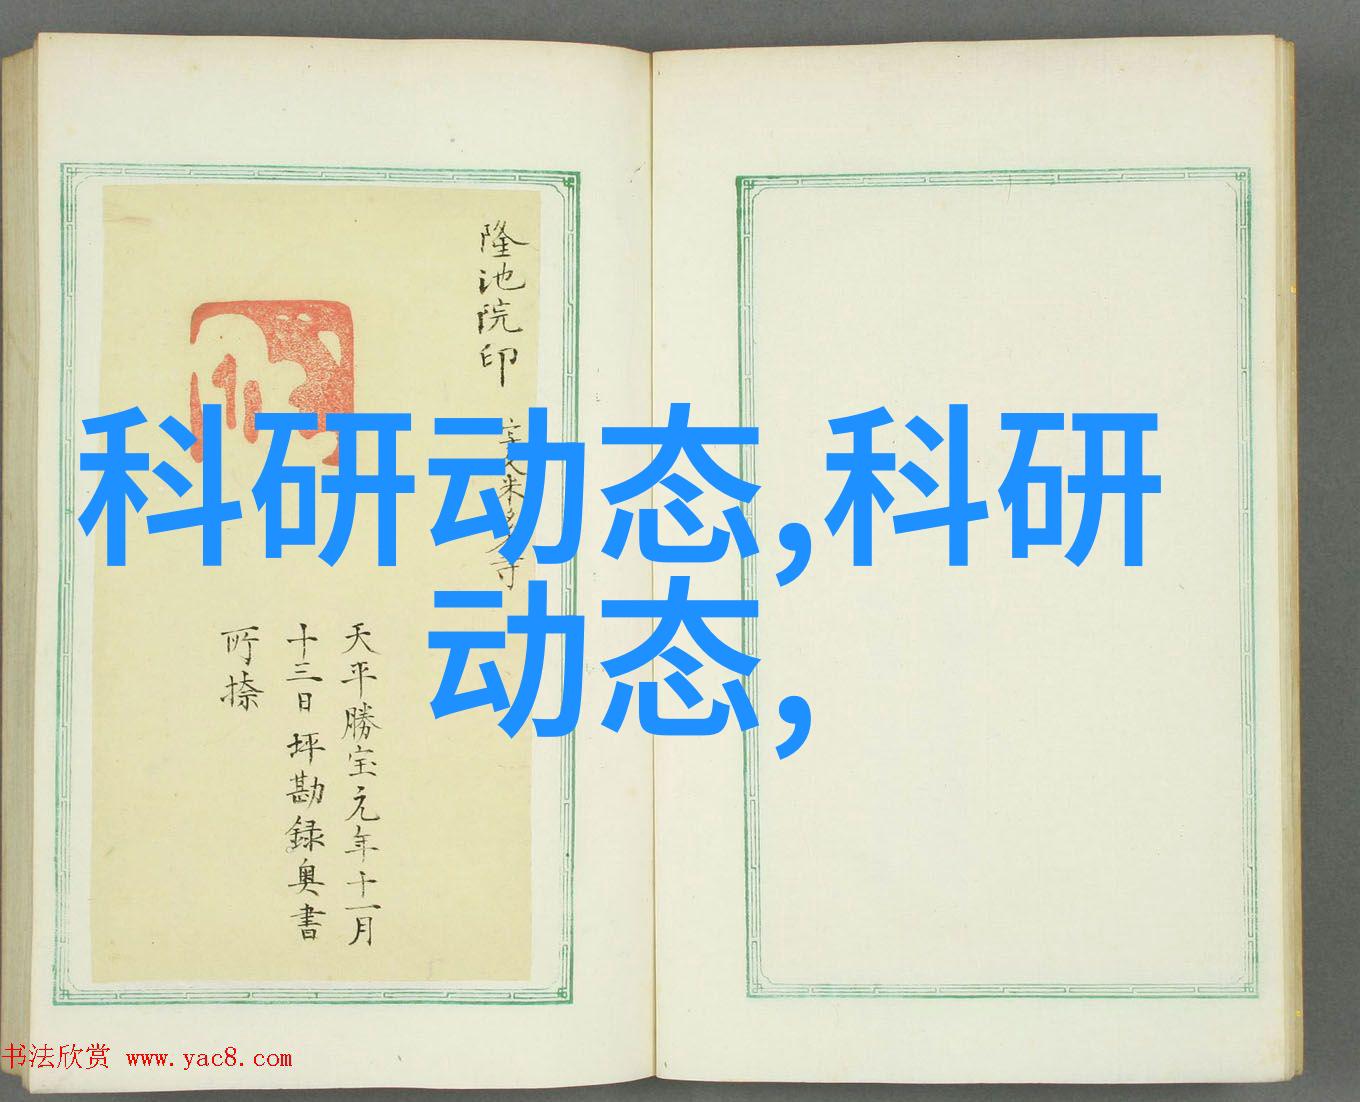 隆池院印
寺
天平勝宝元年十一月
十三日 坪勘録奥書
所捺
科研动态,科研
动态,
书法欣赏 www.yac8.com